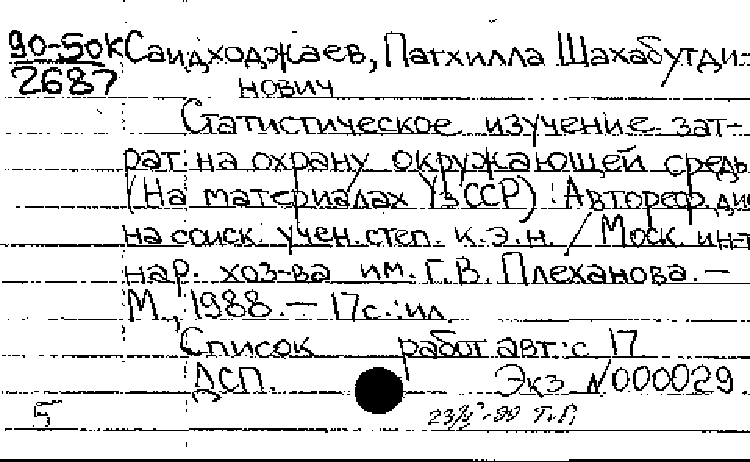 90-50к Саидходжаев, Патхилла Шахабутди-
2687 нович
Статистическое изучение зат-
рат на охрану окружающей среды
(На материалах УзССР) : Автореф. дис
на соиск. учен. степ. к.э.н. / Моск. ин-т
нар. хоз-ва им. Г.В. Плеханова. —
М., 1988. — 17с. : ил.
Список работ авт.: с 17
ДСП. Экз. №000029
5